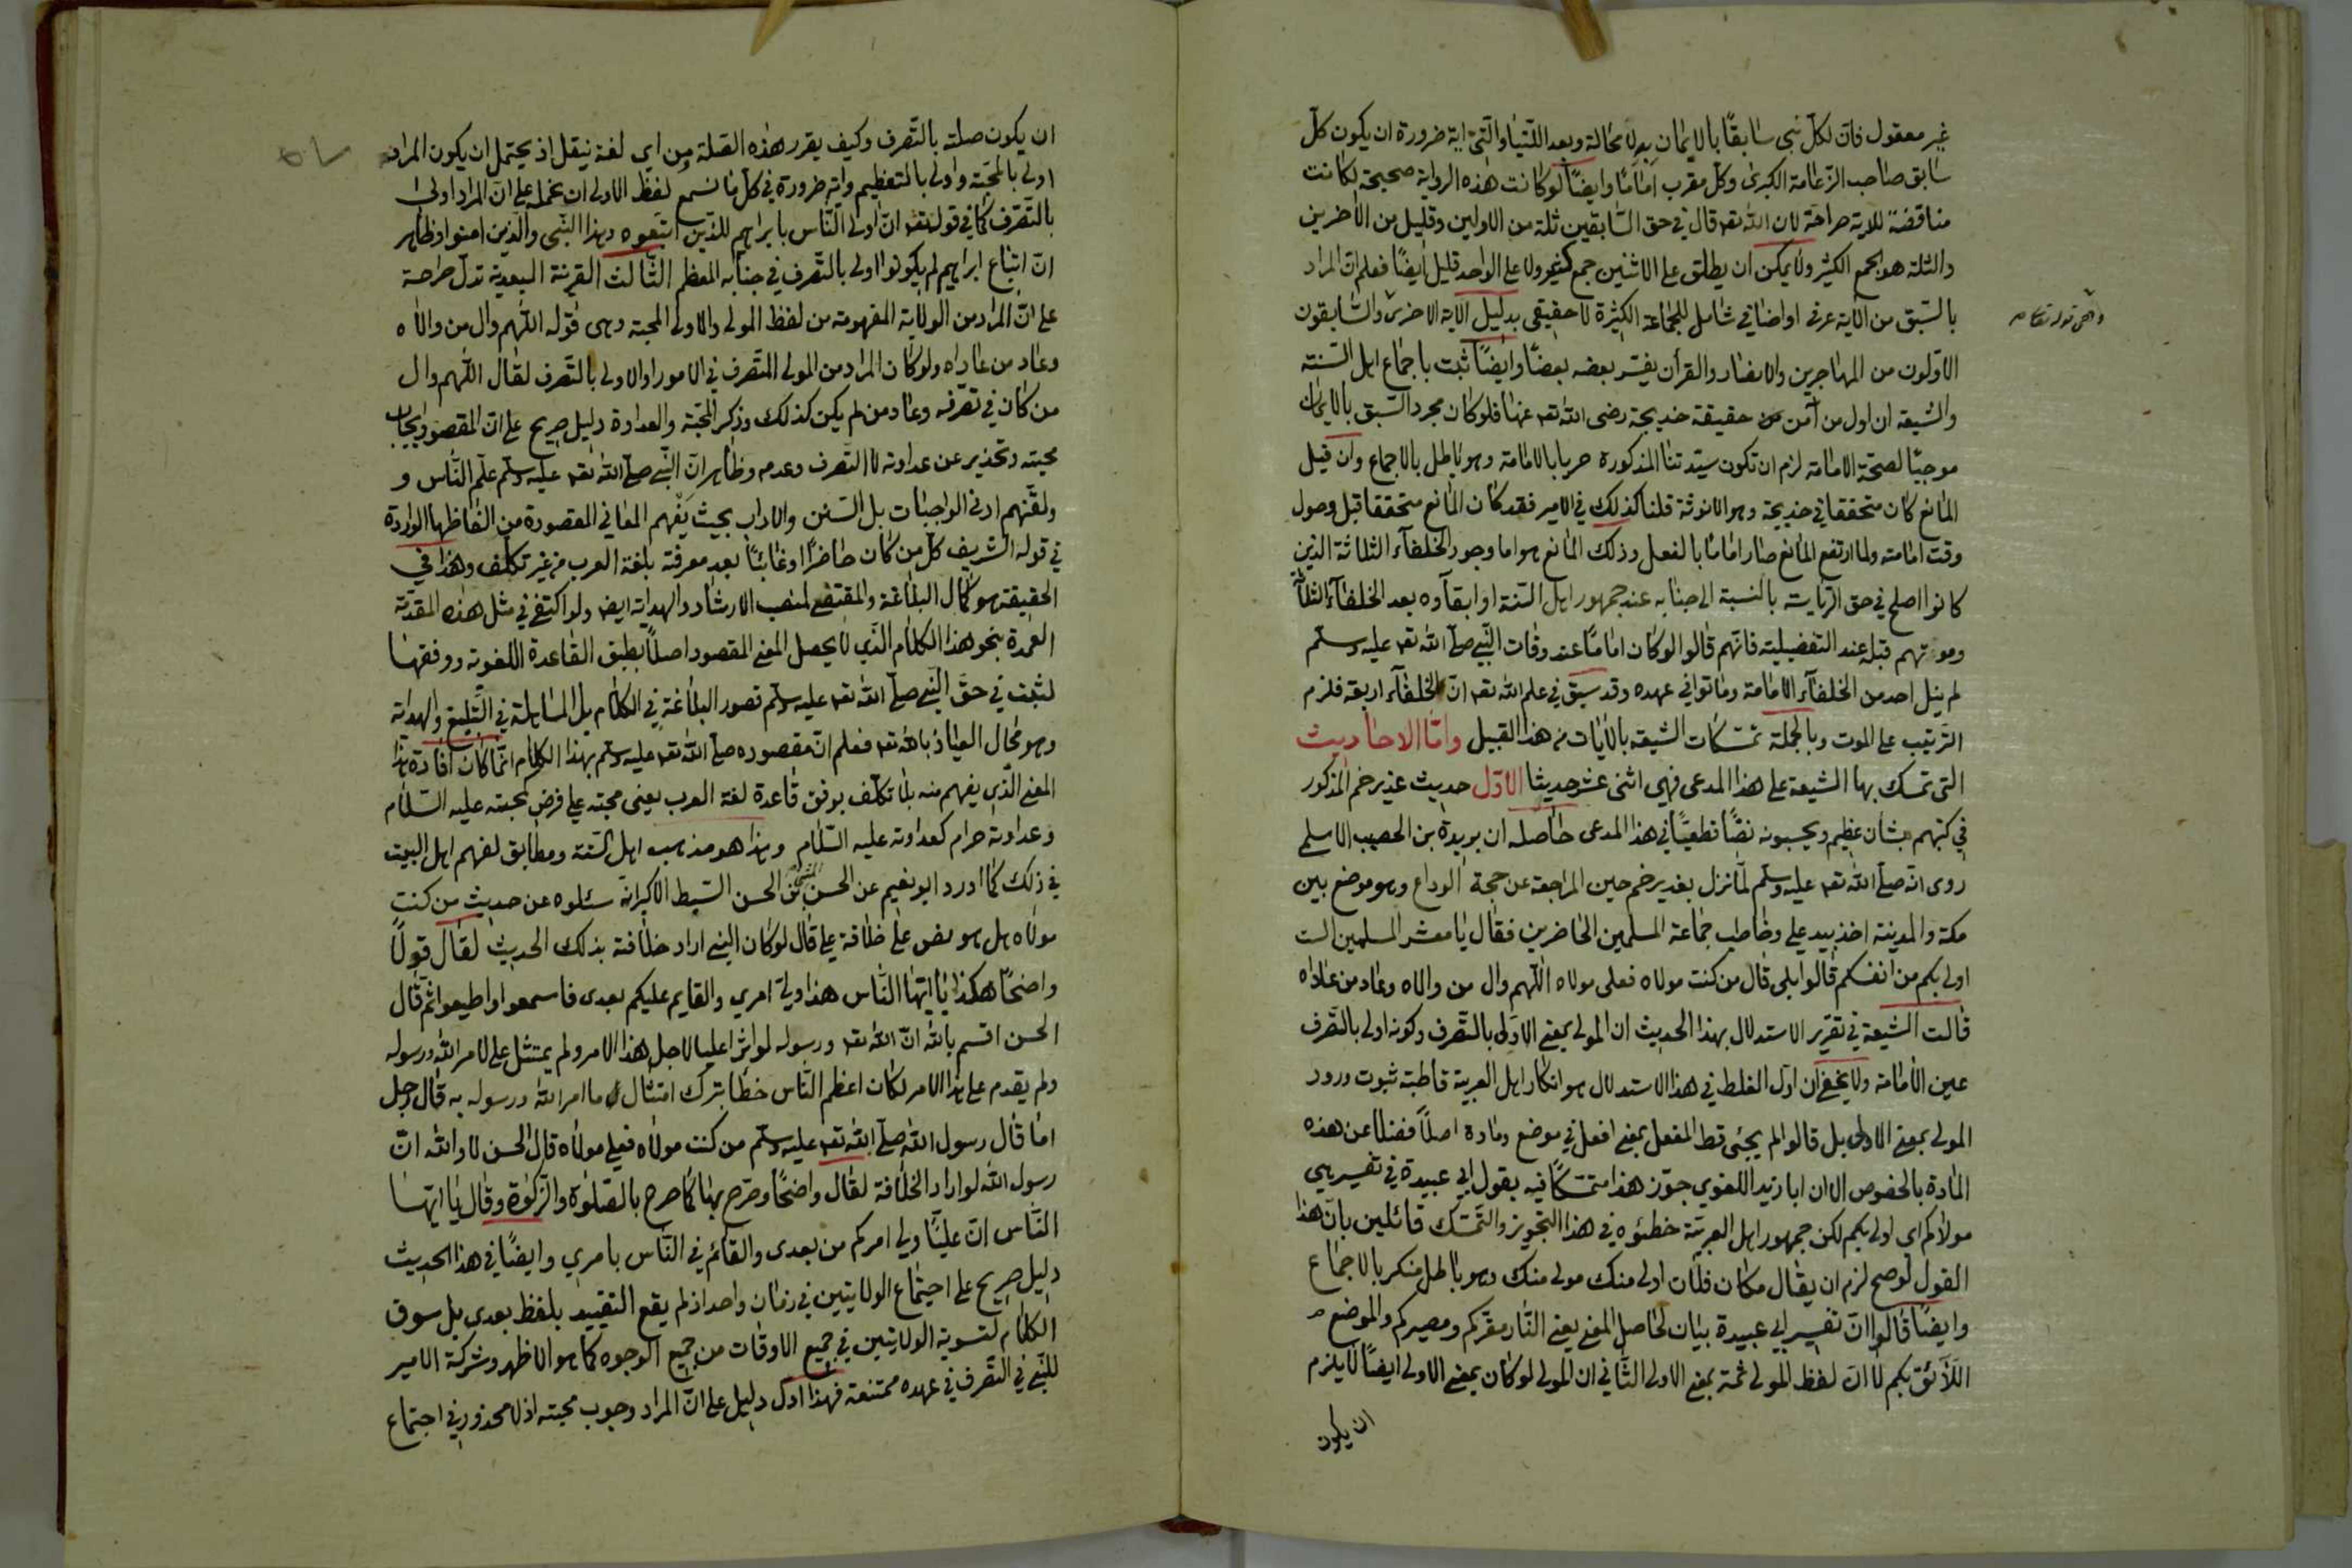 غير معقول فان لكل نبى سابقًا بالايمان به لا محالة وبعد اللتيا والتى اية ضرورة ان يكون كل
سابق صاحب الزعامة الكبرى وكل مقرب امامًا وايضًا لو كانت هذه الرواية صحيحة لكانت
مناقضة للاية صراحة لان الله تعه قال في حق السابقين ثلة من الاولين وقليل من الآخرين
والثلة هو الجمع الكثير ولا يمكن ان يطلق على الاثنين جمع كثير ولا على الواحد قليل ايضًا فعلم ان المراد
بالسبق من الآية عرفى او اضافي شامل للجماعة الكثيرة لا حقيقى بدليل الاية الاخرى والسابقون
وهى قوله تعا
الاولون من المهاجرين والانصار والقرآن يفسر بعضه بعضًا وايضًا ثبت باجماع اهل السنة
والشيعة ان اول من آمن من حقيقة خديجة رضى الله تعه عنها فلو كان مجرد السبق بالايمان
موجبًا لصحة الامامة لزم ان تكون سيدتنا المذكورة حريا بالامامة وهو باطل بالاجماع وان قيل
المانع كان متحققا في خديجة وهو الانوثة قلنا كذلك في الامير فقد كان المانع متحققا قبل وصول
وقت امامته ولما ارتفع المانع صار امامًا بالفعل وذلك المانع هو اما وجود الخلفآء الثلاثة الذين
كانوا اصلح في حق الرياسة بالنسبة الى جنابه عند جمهور اهل السنة او ابقآوه بعد الخلفآء الثلاثة
وموتهم قبله عند التفضيلية فانهم قالوا لو كان امامًا عند وفات النبي صلى الله تعه عليه وسلم
لم ينل احد من الخلفآء الامامة وماتوا في عهده وقد سبق في علم الله تعه ان الخلفآء اربعة فلزم
الترتيب على الموت وبالجملة تمسكات الشيعة بالآيات من هذا القبيل واما الاحاديث
التى تمسك بها الشيعة على هذا المدعى فهى اثنى عشر حديثا الاول حديث غدير خم المذكور
في كتبهم بشان عظيم ويحسبونه نصًا قطعيًا في هذا المدعى حاصله ان بريدة بن الحصيب الاسلمى
روى انه صلى الله تعه عليه وسلم لما نزل بغدير خم حين المراجعة عن حجة الوداع وهو موضع بين
مكة والمدينة اخذ بيد على وخاطب جماعة المسلمين الحاضرين فقال يا معشر المسلمين الست
اولى بكم من انفسكم قالوا بلى قال من كنت مولاه فعلى مولاه اللهم وال من والاه وعاد من عاداه
قالت الشيعة في تقرير الاستدلال بهذا الحديث ان المولى بمعنى الاولى بالتصرف وكونه اولى بالتصرف
عين الامامة ولا يخفى ان اول الغلط في هذا الاستدلال هو انكار اهل العربية قاطبة ثبوت ورود
المولى بمعنى الاولى بل قالوا لم يجئ قط المفعل بمعنى افعل في موضع ومادة اصلًا فضلا عن هذه
المادة بالخصوص الا ان ابا زيد اللغوي جوز هذا متمسكًا فيه بقول ابي عبيدة في تفسير هى
مولاكم اى اولى بكم لكن جمهور اهل العربية خطئوه في هذا التجويز والتمسك قائلين بان هذا
القول لو صح لزم ان يقال مكان فلان اولى منك مولى منك وهو باطل منكر بالاجماع
وايضًا قالوا ان تفسير ابي عبيدة بيان لحاصل المعنى يعنى النار مقركم ومصيركم والموضع
اللائق بكم لا ان لفظ المولى ثمة بمعنى الاولى الثاني ان المولى لو كان بمعنى الاولى ايضًا لا يلزم
ان يكون
ان يكون صلته بالتصرف وكيف يقرر هذه الصلة من اي لغة ينقل اذ يحتمل ان يكون المراد
اولى بالمحبة واولى بالتعظيم واية ضرورة في كل ما نسمع لفظ الاولى ان نحمله على ان المراد اولى
بالتصرف كما في قوله تعه ان اولى الناس بابراهيم للذين اتبعوه وهذا النبى والذين امنوا وظاهر
ان اتباع ابراهيم لم يكونوا اولى بالتصرف في جنابه المعظم الثالث القرينة البعدية تدل صراحة
على ان المراد من الولاية المفهومة من لفظ المولى والاولى المحبة وهى قوله اللهم وال من والاه
وعاد من عاداه ولو كان المراد من المولى المتصرف في الامور او الاولى بالتصرف لقال اللهم وال
من كان في تصرفه وعاد من لم يكن كذلك وذكر المحبة والعداوة دليل صريح على ان المقصود ايجاب
محبته وتحذير عن عداوته لا التصرف وعدمه وظاهر ان النبي صلى الله تعه عليه وسلم علم الناس و
ولقنهم ادنى الواجبات بل السنن والاداب بحيث يفهم المعانى المقصودة من الفاظها الواردة
في قوله الشريف كل من كان حاضرًا او غائبًا بعد معرفة بلغة العرب من غير تكلف وهذا في
الحقيقة هو كمال البلاغة والمقتضى لمنصب الارشاد والهداية ايضا ولو اكتفى في مثل هذه المقدمة
العمدة بنحو هذا الكلام الذي لا يحصل المعنى المقصود اصلًا بطبق القاعدة اللغوية ووفقها
لثبت في حق النبي صلى الله تعه عليه وسلم قصور البلاغة في الكلام بل المساهلة في التبليغ والهداية
وهو محال العياذ بالله تعه فعلم ان مقصوده صلى الله تعه عليه وسلم بهذا الكلام انما كان افادة هذا
المعنى الذي يفهم منه بلا تكلف بوفق قاعدة لغة العرب يعنى محبته على فرض كمحبته عليه السلام
وعداوته حرام كعداوته عليه السلام وهذا هو مذهب اهل السنة ومطابق لفهم اهل البيت
في ذلك كما اورد ابو نعيم عن الحسن المثنى بن الحسن السبط الاكبر انه سئلوه عن حديث من كنت
مولاه هل هو نص على خلافة على قال لو كان النبي اراد خلافته بذلك الحديث لقال قولًا
واضحًا هكذا يا ايها الناس هذا ولى امري والقايم عليكم بعدى فاسمعوا واطيعوا ثم قال
الحسن اقسم بالله ان الله تعه ورسوله لو اثرا عليا لاجل هذا الامر ولم يمتثل على لامر الله ورسوله
ولم يقدم على هذا الامر لكان اعظم الناس خطأ بترك امتثال ما امر الله ورسوله به قال رجل
اما قال رسول الله صلى الله تعه عليه وسلم من كنت مولاه فعلي مولاه قال الحسن لا والله ان
رسول الله لو اراد الخلافة لقال واضحًا وصرح بها كما صرح بالصلوة والزكوة وقال يا ايها
الناس ان عليًا ولى امركم من بعدى والقائم في الناس بامري وايضًا في هذا الحديث
دليل صريح على اجتماع الولايتين في زمان واحد اذ لم يقع التقييد بلفظ بعدى بل سوق
الكلام لتسوية الولايتين في جميع الاوقات من جميع الوجوه كما هو الاظهر وشركة الامير
للنبي في التصرف في عهده ممتنعة فهذا ادل دليل على ان المراد وجوب محبته اذ لا محذور في اجتماع